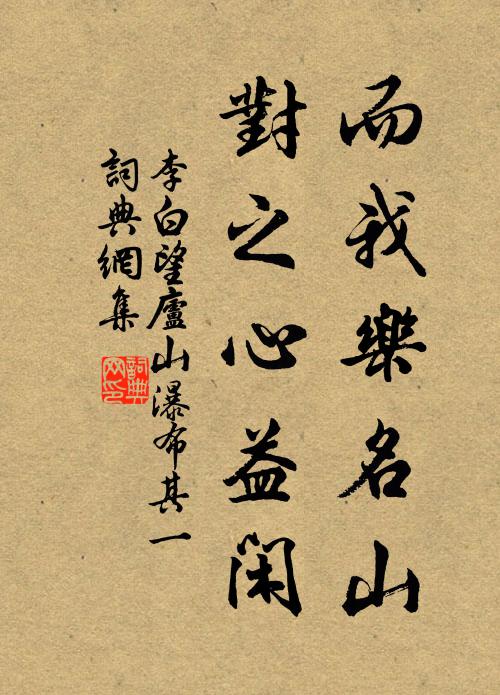 而我樂名山
對之心益閑
李白望廬山瀑布其一
詞典網集
詞典
网印